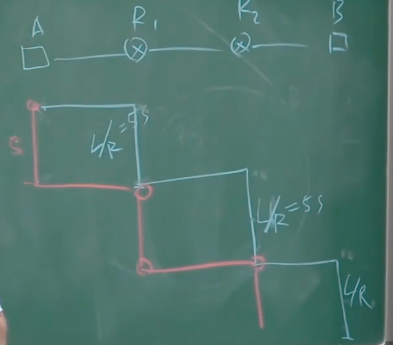 A R₁ R₂ B
S
L/R=5s
L/R=5s
L/R